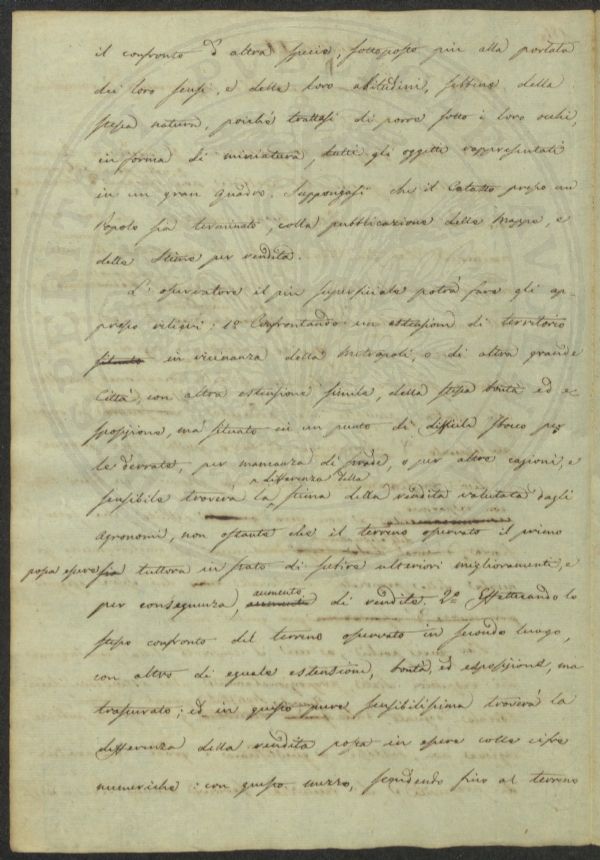 il confronto d'altra specie, sottoposto più alla portata
dei loro sensi, e delle loro abitudini, sebbene della
stessa natura, poiché trattasi di porre sotto i loro occhi,
in forma di miniatura, tutti gli oggetti rappresentati
in un gran quadro. Suppongasi che il Catasto presso un
Popolo sia terminato, colla pubblicazione delle Mappe, e
delle Stime per rendita.
L'osservatore il più superficiale potrà fare gli ap-
presso rilievi: 1º Confrontando un estensione di territorio
situato in vicinanza della Metropoli, o di altra grande
Città, con altra estensione simile, della stessa bontà ed e-
sposizione, ma situato in un punto di difficile sbocco per
le derrate, per mancanza di strade, o per altre cagioni, e
sensibile troverà la differenza della stima della rendita valutata dagli
Agronomi, non ostante che il terreno osservato il primo
possa essere sia tuttora in stato di subire ulteriori miglioramenti, e
per conseguenza, aumento di rendita. 2º Effettuando lo
stesso confronto del terreno osservato in secondo luogo,
con altro di eguale estensione, bontà, ed esposizione, ma
trascurato; ed in questo pure sensibilissima troverà la
differenza della rendita posta in essere colle cifre
numeriche: con questo mezzo, scendendo fino al terreno